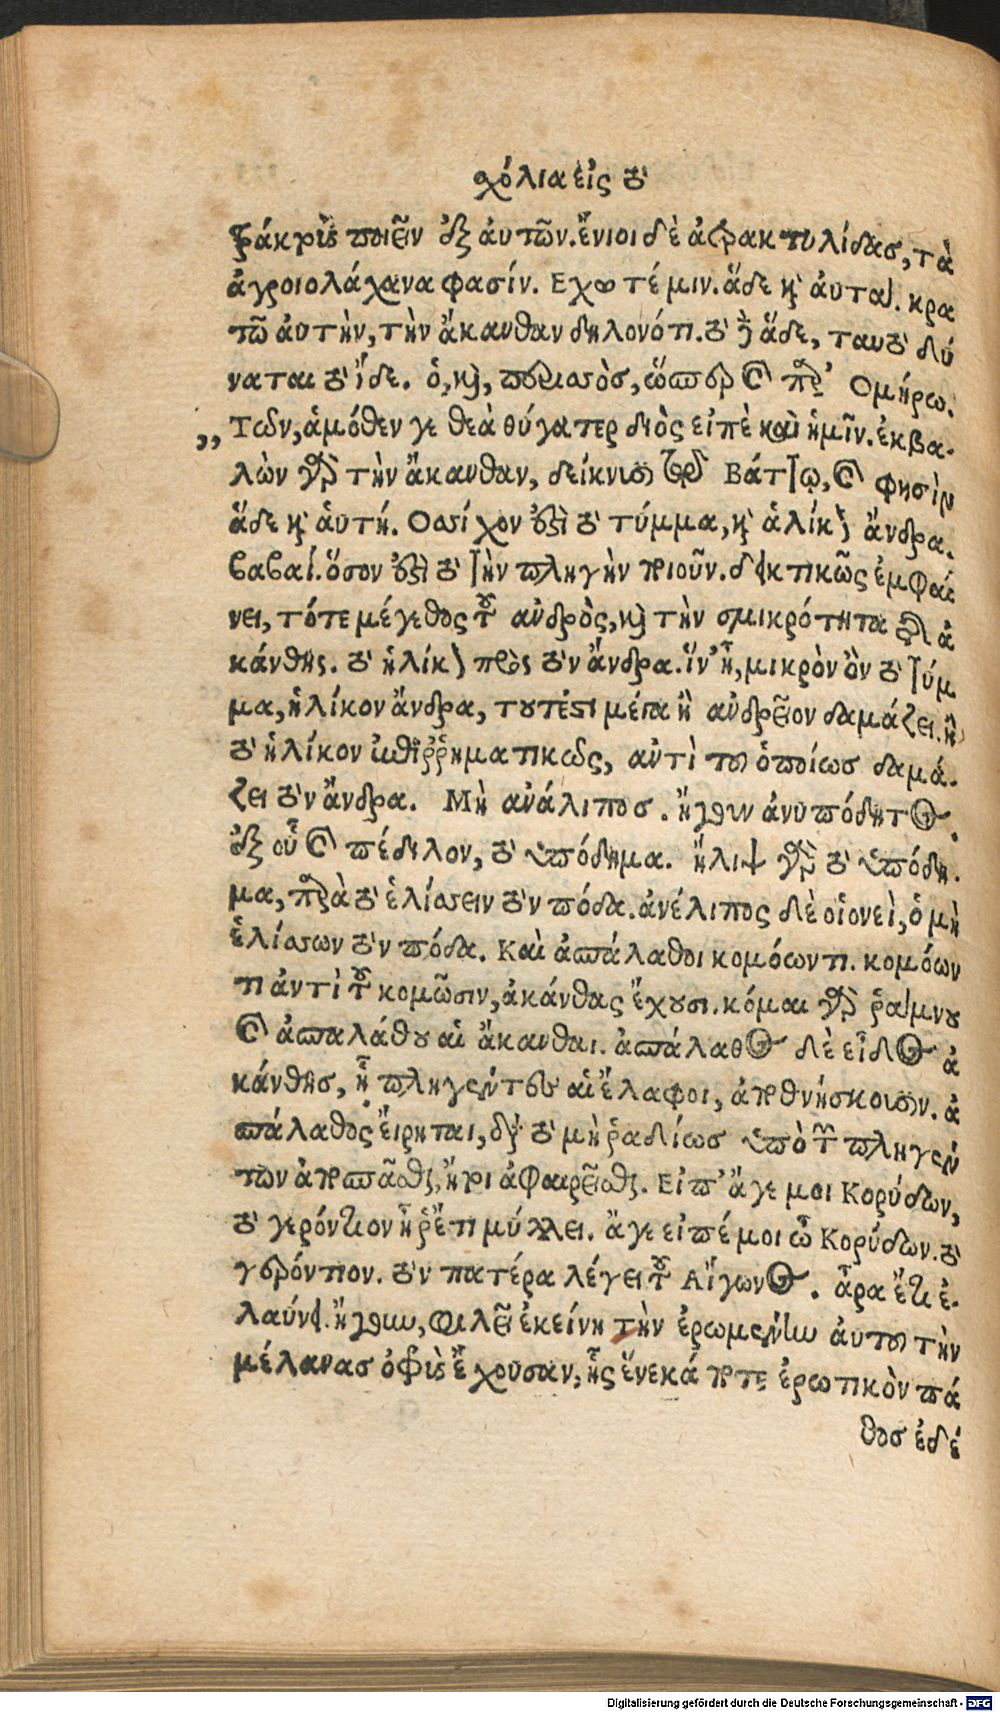 σχόλια εἰς τὸ
τράκτους ποιεῖν ἐξ αὐτῶν. ἔνιοι δὲ ἀτρακτυλίδας, τὰ
ἀγριολάχανα φασίν. Εχω τέ μιν. ἅδε καὶ αὐτά. κρα
τῶ ἀυτὴν, τὴν ἄκανθαν δηλονότι. τὸ δὲ ἅδε, ταυτὸ δύ
ναται τὸ ἴδε. ὁ, καὶ, περισσὸς, ὥσπερ καὶ παρ’ Ομήρω.
,, Τῶν, ἁμόθεν γε θεὰ θύγατερ διὸς εἰπὲ καὶ ἡμῖν. ἐκβα-
λὼν γὰρ τὴν ἄκανθαν, δείκνυσι τῷ Βάττῳ, καὶ φησὶν
ἅδε καὶ ἁυτή. Οσσίχον ἐστὶ τὸ τύμμα, καὶ ἁλίκον ἄνδρα.
βαβαί. ὅσον ἐστὶ τὸ τὴν πληγὴν ποιοῦν. δεικτικῶς ἐμφαί
νει, τότε μέγεθος τοῦ ἀνδρὸς, καὶ τὴν σμικρότητα τῆς ἀ
κάνθης. τὸ ἡλίκον πρὸς τὸν ἄνδρα. ἵν’ ᾖ, μικρὸν ὂν τὸ τύμ
μα, ἡλίκον ἄνδρα, τουτέστι μέγα ἢ ἀνδρεῖον δαμάζει. ἢ
τὸ ἡλίκον ἐπιῤῥηματικῶς, ἀντὶ του ὁποίως δαμά-
ζει τὸν ἄνδρα. Μὴ ἀνάλιπος. ἤγουν ἀνυπόδητος.
ἐξ οὗ καὶ πέδιλον, τὸ ὑπόδημα. ἤλιψ γὰρ τὸ ὑπόδη-
μα, παρὰ τὸ ἑλίσσειν τὸν πόδα. ἀνέλιπος δὲ οἱονεὶ, ὁ μὴ
ἑλίσσων τὸν πόδα. Καὶ ἀσπάλαθοι κομόωντι. κομόων
τι ἀντὶ τοῦ κομῶσιν, ἀκάνθας ἔχουσι. κόμαι γὰρ ῥάμνου
καὶ ἀσπαλάθου αἱ ἄκανθαι. ἀσπάλαθος δὲ εἶδος ἀ
κάνθης, ᾗ πληγέντες αἱ ἔλαφοι, ἀποθνήσκουσιν. ἀ
σπάλαθος εἴρηται, διὰ τὸ μὴ ῥαδίως ὑπὸ τῶν πληγέν
των ἀποσπᾶσθαι, ἤτοι ἀφαιρεῖσθαι. Εἰπ’ ἄγε μοι Κορύδων,
τὸ γερόντιον ἦ ῥ’ ἔτι μύλλει. ἄγε εἰπέ μοι ὦ Κορύδων. τὸ
γερόντιον. τὸν πατέρα λέγει τοῦ Αἴγωνος. ἆρα ἔτι ἐ-
λαύνει. ἤγουν, φιλεῖ ἐκείνη τὴν ἐρωμένην ἀυτου τὴν
μέλανας ὀφρῦς ἔχουσαν, ἧς ἕνεκά ποτε ἐρωτικὸν πά
θος ἐδέ
Digitalisierung gefördert durch die Deutsche Forschungsgemeinschaft - DFG